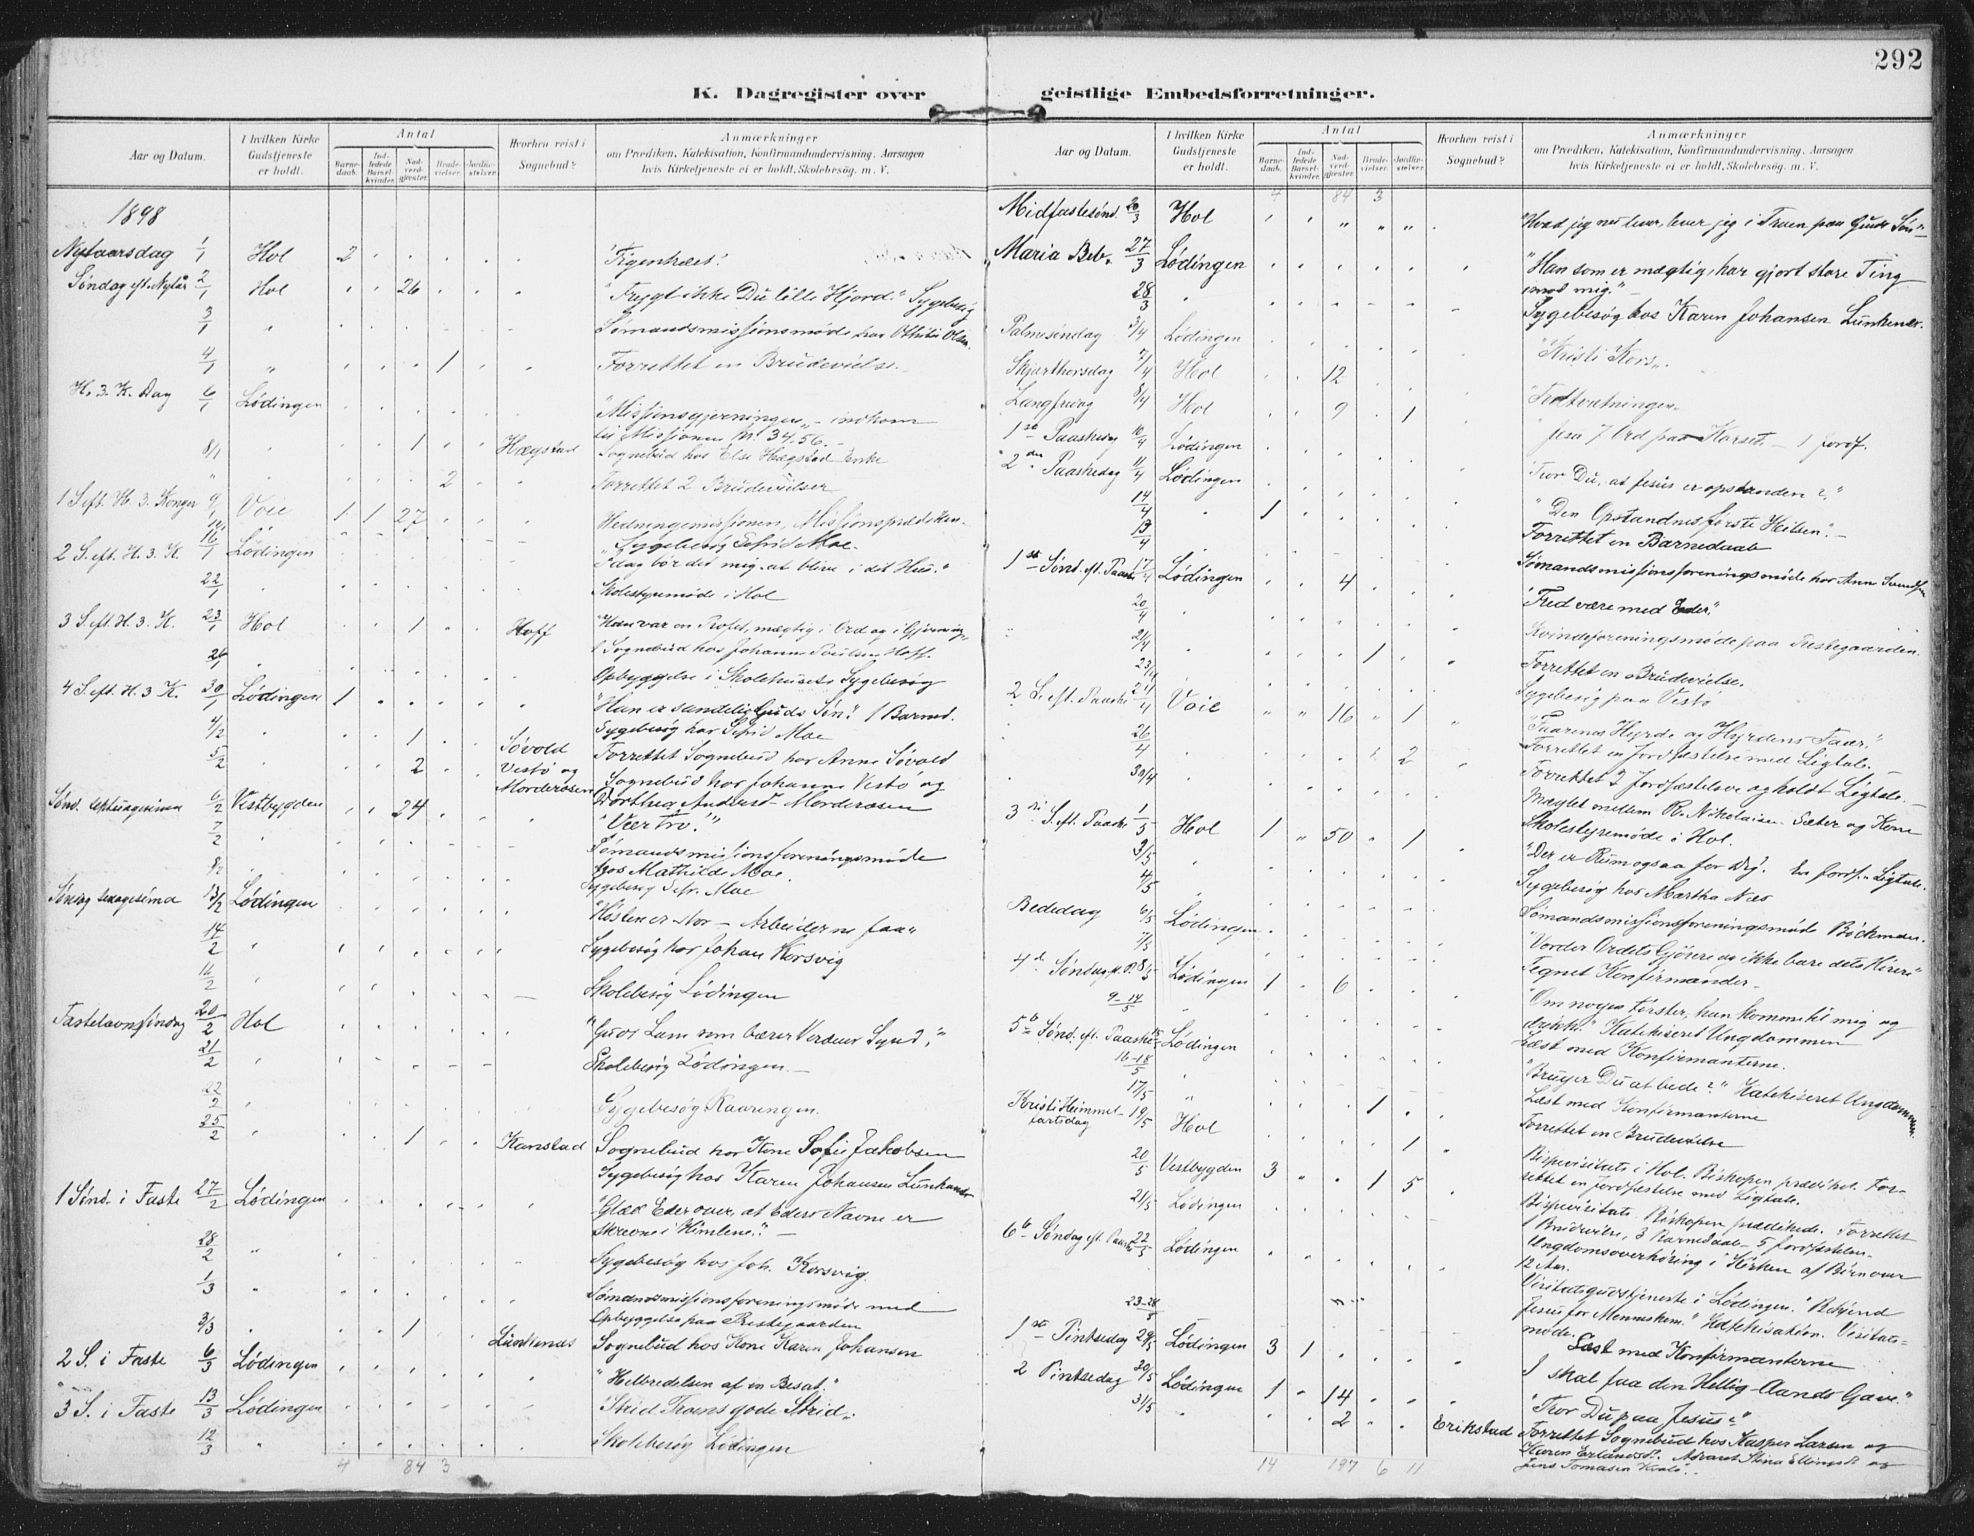 292
K. Dagregister over geistlige Embedsforretninger.
Aar og Datum. I hvilken Kirke Gudstjeneste er holdt. Antal Barnedaab. Indledede Barselkvinder. Nadverdgjester. Brudevielser. Jordfæstelser. Hvorhen reist i Sognebud? Anmærkninger om Prædiken, Katekisation, Konfirmandundervisning. Aarsagen hvis Kirketjeneste ei er holdt. Skolebesög. m. V.
1898
Nytaarsdag 1/1 Hol 2 "Figentræet."
Søndag eft. Nytår 2/1 Hol 26 "Frygt ikke Du lille Hjord." Sygebesøg
3/1 Sømandsmissionsmøde hos Olsen.
4/1 1 Forrettet en Brudevielse.
H. 3. K. Dag 6/1 Lødingen "Missionsgjerningen" - indkom
til Missionen Kr. 34.56.
8/1 1 Hægstad Sognebud hos Else Hægstad Enke
2 Forrettet 2 Brudevielser
1 S. eft. H. 3. Konger 9/1 Voie 1 1 27 Hedningemissionen, Missionsprædiken.
Sygebesøg Moe.
2 S. eft. H. 3. K. 16/1 Lødingen "Idag bør det mig at blive i dit Hus."
22/1 Skolestyremøde i Hol
3 S. eft. H. 3. K. 23/1 Hol 1 Hoff "Han var en Profet, mægtig i Ord og i Gjerning"
1 Sognebud hos Johanne Hoff.
26/1 Opbyggelse i Skolehuset. Sygebesøg
4 S. eft. H. 3 K. 30/1 Lødingen 1 "Han er sandelig Guds Søn." 1 Barned.
Sygebesøg hos Moe
4/2 1 Søvold Forrettet Sognebud hos Anne Søvold
5/2 2 Vestø og Sognebud hos Johanna Vestø og
Morderosen Dorthea Andersd. Morderosen
Sønd. Septuagesima 6/2 Vestbygden 24 "Vær tro."
7/2 Sømandsmissionsforeningsmøde
hos Mathilde Moe.
8/2 Sygebesøg Moe
Søndag Sexagesima 13/2 Lødingen "Høsten er stor - Arbeiderne faa"
14/2 Sygebesøg hos Johan Korsvig
16/2 Skolebesøg Lødingen
Fastelavnssøndag 20/2 Hol "Guds Lam som bærer Verdens Synd."
21/2 Skolebesøg Lødingen.
22/2 Sygebesøg Kaaringen.
25/2 1 Kanstad Sognebud hos Kone Sofie Jakobsen
Sygebesøg hos Karen Johansen Lunkenes
1 Sønd. i Faste 27/2 Lødingen "Glæd Eder over, at Eders Navne er
skrevne i Himlene." -
28/2 Sygebesøg hos Joh. Korsvig.
1/3 Sømandsmissionsforeningsmøde med
Opbyggelse paa Prestegaarden
3/3 1 Lunkenes Sognebud hos Kone Karen Johansen
2 S. i Faste 6/3 Lødingen "Helbredelsen af en Besat."
3 S. i Faste 13/3 Lødingen "Strid Troens gode Strid."
12/3 Skolebesøg Lødingen
4 84 3
Aar og Datum. I hvilken Kirke Gudstjeneste er holdt. Antal Barnedaab. Indledede Barselkvinder. Nadverdgjester. Brudevielser. Jordfæstelser. Hvorhen reist i Sognebud? Anmærkninger om Prædiken, Katekisation, Konfirmandundervisning. Aarsagen hvis Kirketjeneste ei er holdt. Skolebesög. m. V.
4 84 3
Midfastesønd. 20/3 Hol "Hvad jeg nu lever, lever jeg i Troen paa Guds Søn"
Maria Beb. 27/3 Lødingen "Han som er mægtig, har gjort store Ting
imod mig."
28/3 Sygebesøg hos Karen Johansen Lunkenes.
Palmesøndag 3/4 Lødingen "Kristi Kors".
Skjærthorsdag 7/4 Hol 12
Langfredag 8/4 Hol 9 1 Jesu 7 Ord paa Korset. - 1 Jordf.
1ste Paaskedag 10/4 Lødingen "Tror Du, at Jesus er opstanden?"
2den Paaskedag 11/4 Lødingen "Den Opstandnes første Hilsen." -
14/4 1 Forrettet en Barnedaab
13/4 Sømandsmissionsforeningsmøde hos Anne
1ste Sønd. eft. Paaske 17/4 Lødingen 4 "Fred være med Eder."
20/4 Kvindeforeningsmøde paa Prestegaarden.
21/4 1 Forrettet en Brudevielse.
23/4 Sygebesøg paa Vestø
2 S. eft. Paaske 24/4 Voie 16 1 "Faarenes Hyrde og Hyrdens Faar."
Forrettet en Jordfæstelse med Ligtale. -
26/4 2 Forrettet 2 Jordfæstelse og holdt Ligtale. -
30/4 Mæglet mellem R. Nikolaisen Sæter og Kone
Skolestyremøde i Hol.
3die S. eft. Paaske 1/5 Hol 1 50 1 "Der er Rum ogsaa for Dig." En Jordf. - Ligtale.
3/5 Sygebesøg hos Martha Næs
4/5 Sømandsmissionsforeningsmøde Böckman.
Bededag 6/5 Lødingen "Vorder Ordets Gjørere og ikke bare dets Hørere"
7/5 Tegnet Konfirmander -
4de Søndag e. P. 8/5 Lødingen 1 6 "Om nogen tørster, han komme til mig og
drikke." Katekiseret Ungdommen
9-14/5 Læst med Konfirmanterne.
5te Sønd. eft. Paaske 15/5 Lødingen "Bruger Du at bede?" Katekiseret Ungdommen.
16-18/5 Læst med Konfirmanterne
17/5 1 Forrettet en Brudevielse
Kristi Himmelfartsdag 19/5 Hol 1 Bispevisitats i Hol. Bispen prædiket. Forrettet
en Jordfæstelse med Ligtale.
20/5 Vestbygden 3 1 5 Bispevisitats. Biskopen prædikede. Forrettet
1 Brudevielse, 3 Barnedaab - 5 Jordfæstelser.
21/5 Lødingen Ungdomsoverhøring i Kirken af Børn over
12 Aar.
6te Søndag eft. Paaske 22/5 Lødingen Visitatsgudstjeneste i Lødingen. "Bekjend
Jesus for Menneskene." Katekisation. Visitatsmøde.
23-28/5 Læst med Konfirmanterne
1ste Pintsedag 29/5 Lødingen 3 1 I skal faa den Hellig-Aands Gave."
2 Pintsedag 30/5 Lødingen 1 14 "Tror Du paa Jesus?"
31/5 2 Erikstad Forrettet Sognebud hos Kasper Larsen og
Karen Erlandsd. Advaret Stina Ellingsd. og
Jens Tomasen
14 197 6 11